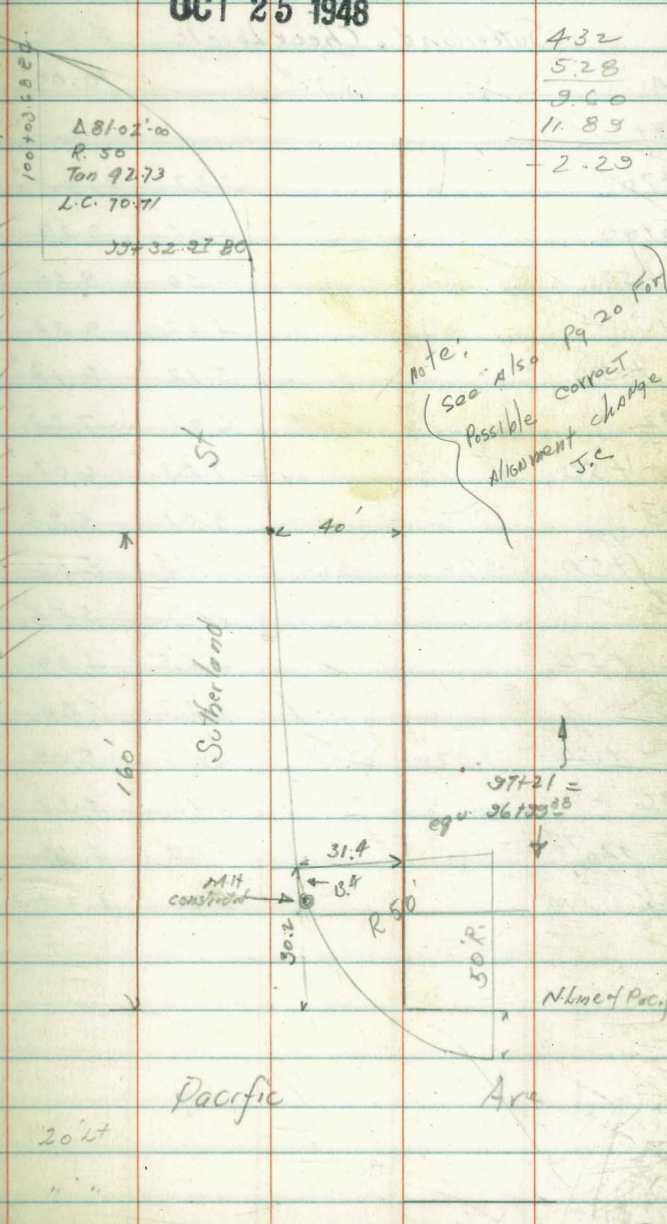 OCT 25 1948
432
5.28
9.60
11.89
-2.29
100+03.68 EC
Δ 81-02'-00
R. 50
Tan 42.73
L.C. 70.71
99+32.97 BC
Note:
See Also Pg 20 For
Possible correct
Alignment change
J.C
St
40'
Sutherland
160'
97+21 =
equ. 96+99.38
31.4
M.H
constructed
R 50'
30.2
50' R.
N. Line of Pac.
Pacific Ave
20' Lt
" "